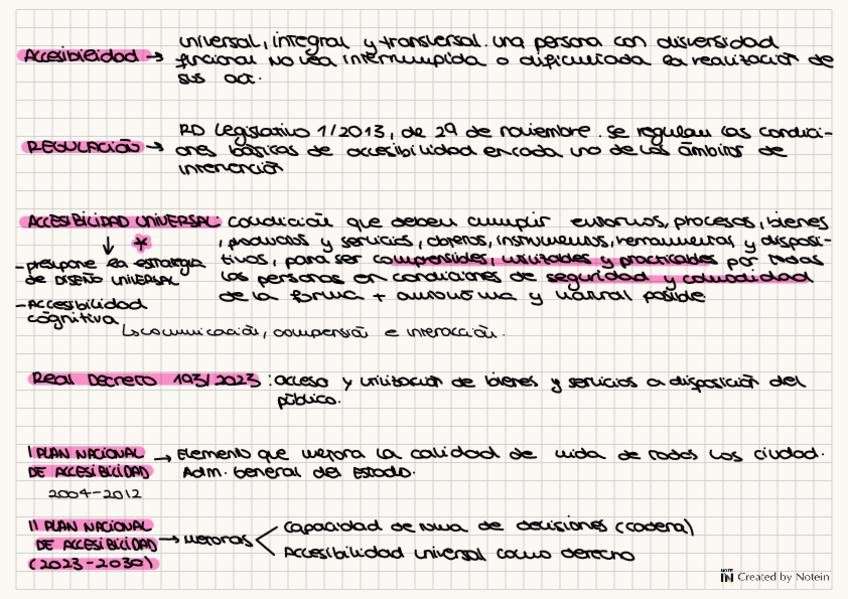 Accesibilidad → universal, integral y transversal. una persona con diversidad
funcional NO vea interrumpida o dificultada la realización de
sus act.
REGULACIÓN → RD Legislativo 1/2013, de 29 de noviembre. Se regulan las condici-
ones básicas de accesibilidad en cada uno de los ámbitos de
intervención
ACCESIBILIDAD UNIVERSAL: condición que deben cumplir entornos, procesos, bienes
, productos y servicios, objetos, instrumentos, herramientas y disposi-
tivos, para ser comprensibles, utilizables y practicables por todas
las personas en condiciones de seguridad y comodidad
de la forma + autónoma y natural posible
↓ *
- presupone la estrategia
de DISEÑO UNIVERSAL
- Accesibilidad
cognitiva
↳ comunicación, compensión e interacción.
Real Decreto 193/2023: acceso y utilización de bienes y servicios a disposición del
público.
I PLAN NACIONAL
DE ACCESIBILIDAD
2004-2012
→ Elemento que mejora la calidad de vida de todos los ciudad.
Adm. General del Estado.
II PLAN NACIONAL
DE ACCESIBILIDAD
(2023-2030)
→ mejoras
Capacidad de toma de decisiones (cadera)
Accesibilidad universal como derecho
NOTE IN Created by Notein